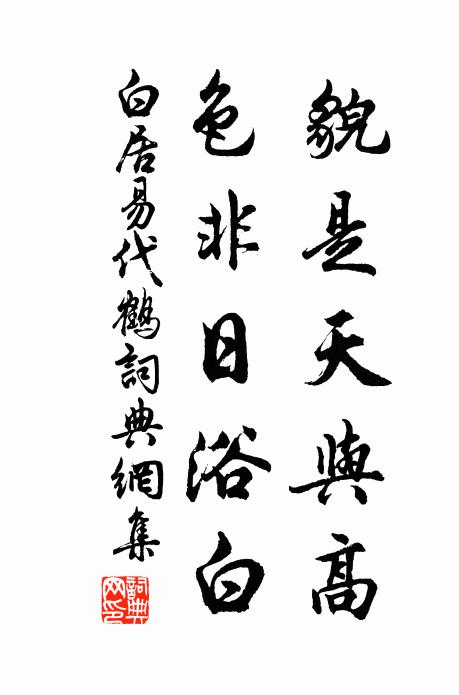 貌是天與高
色非日浴白
白居易代鶴詞典網集
詞典网印